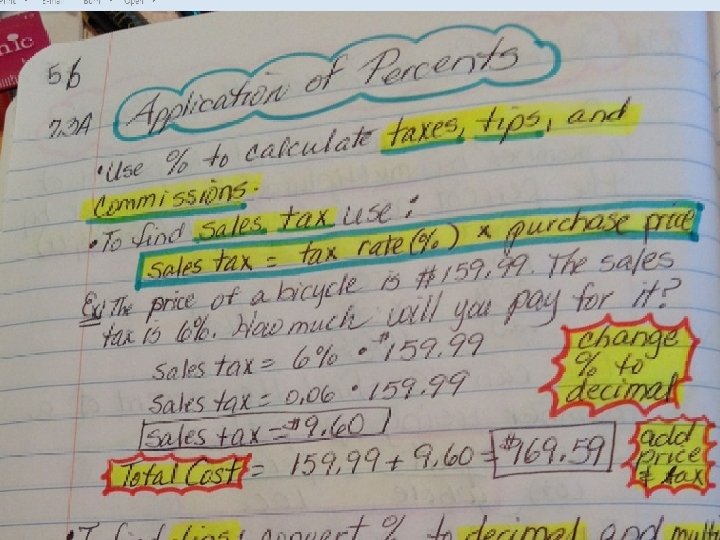 nic
56
Application of Percents
7.3A
• Use % to calculate taxes, tips, and
commissions.
• To find sales tax use:
sales tax = tax rate (%) x purchase price
Ex: The price of a bicycle is $159.99. The sales
tax is 6%. How much will you pay for it?
sales tax = 6% • $159.99
sales tax = 0.06 • 159.99
sales tax = $9.60
change
% to
decimal
Total Cost = 159.99 + 9.60 = $169.59
add
price
& tax
tips: convert % to decimal and